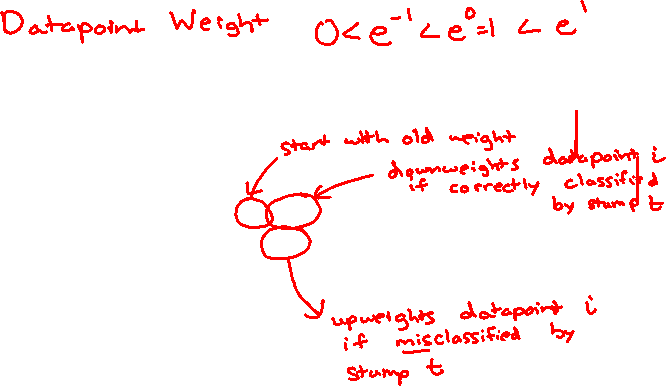 Datapoint Weight 0 < e^-1 < e^0 = 1 < e^1
start with old weight
downweights datapoint i
if correctly classified
by stump t
upweights datapoint i
if misclassified by
stump t